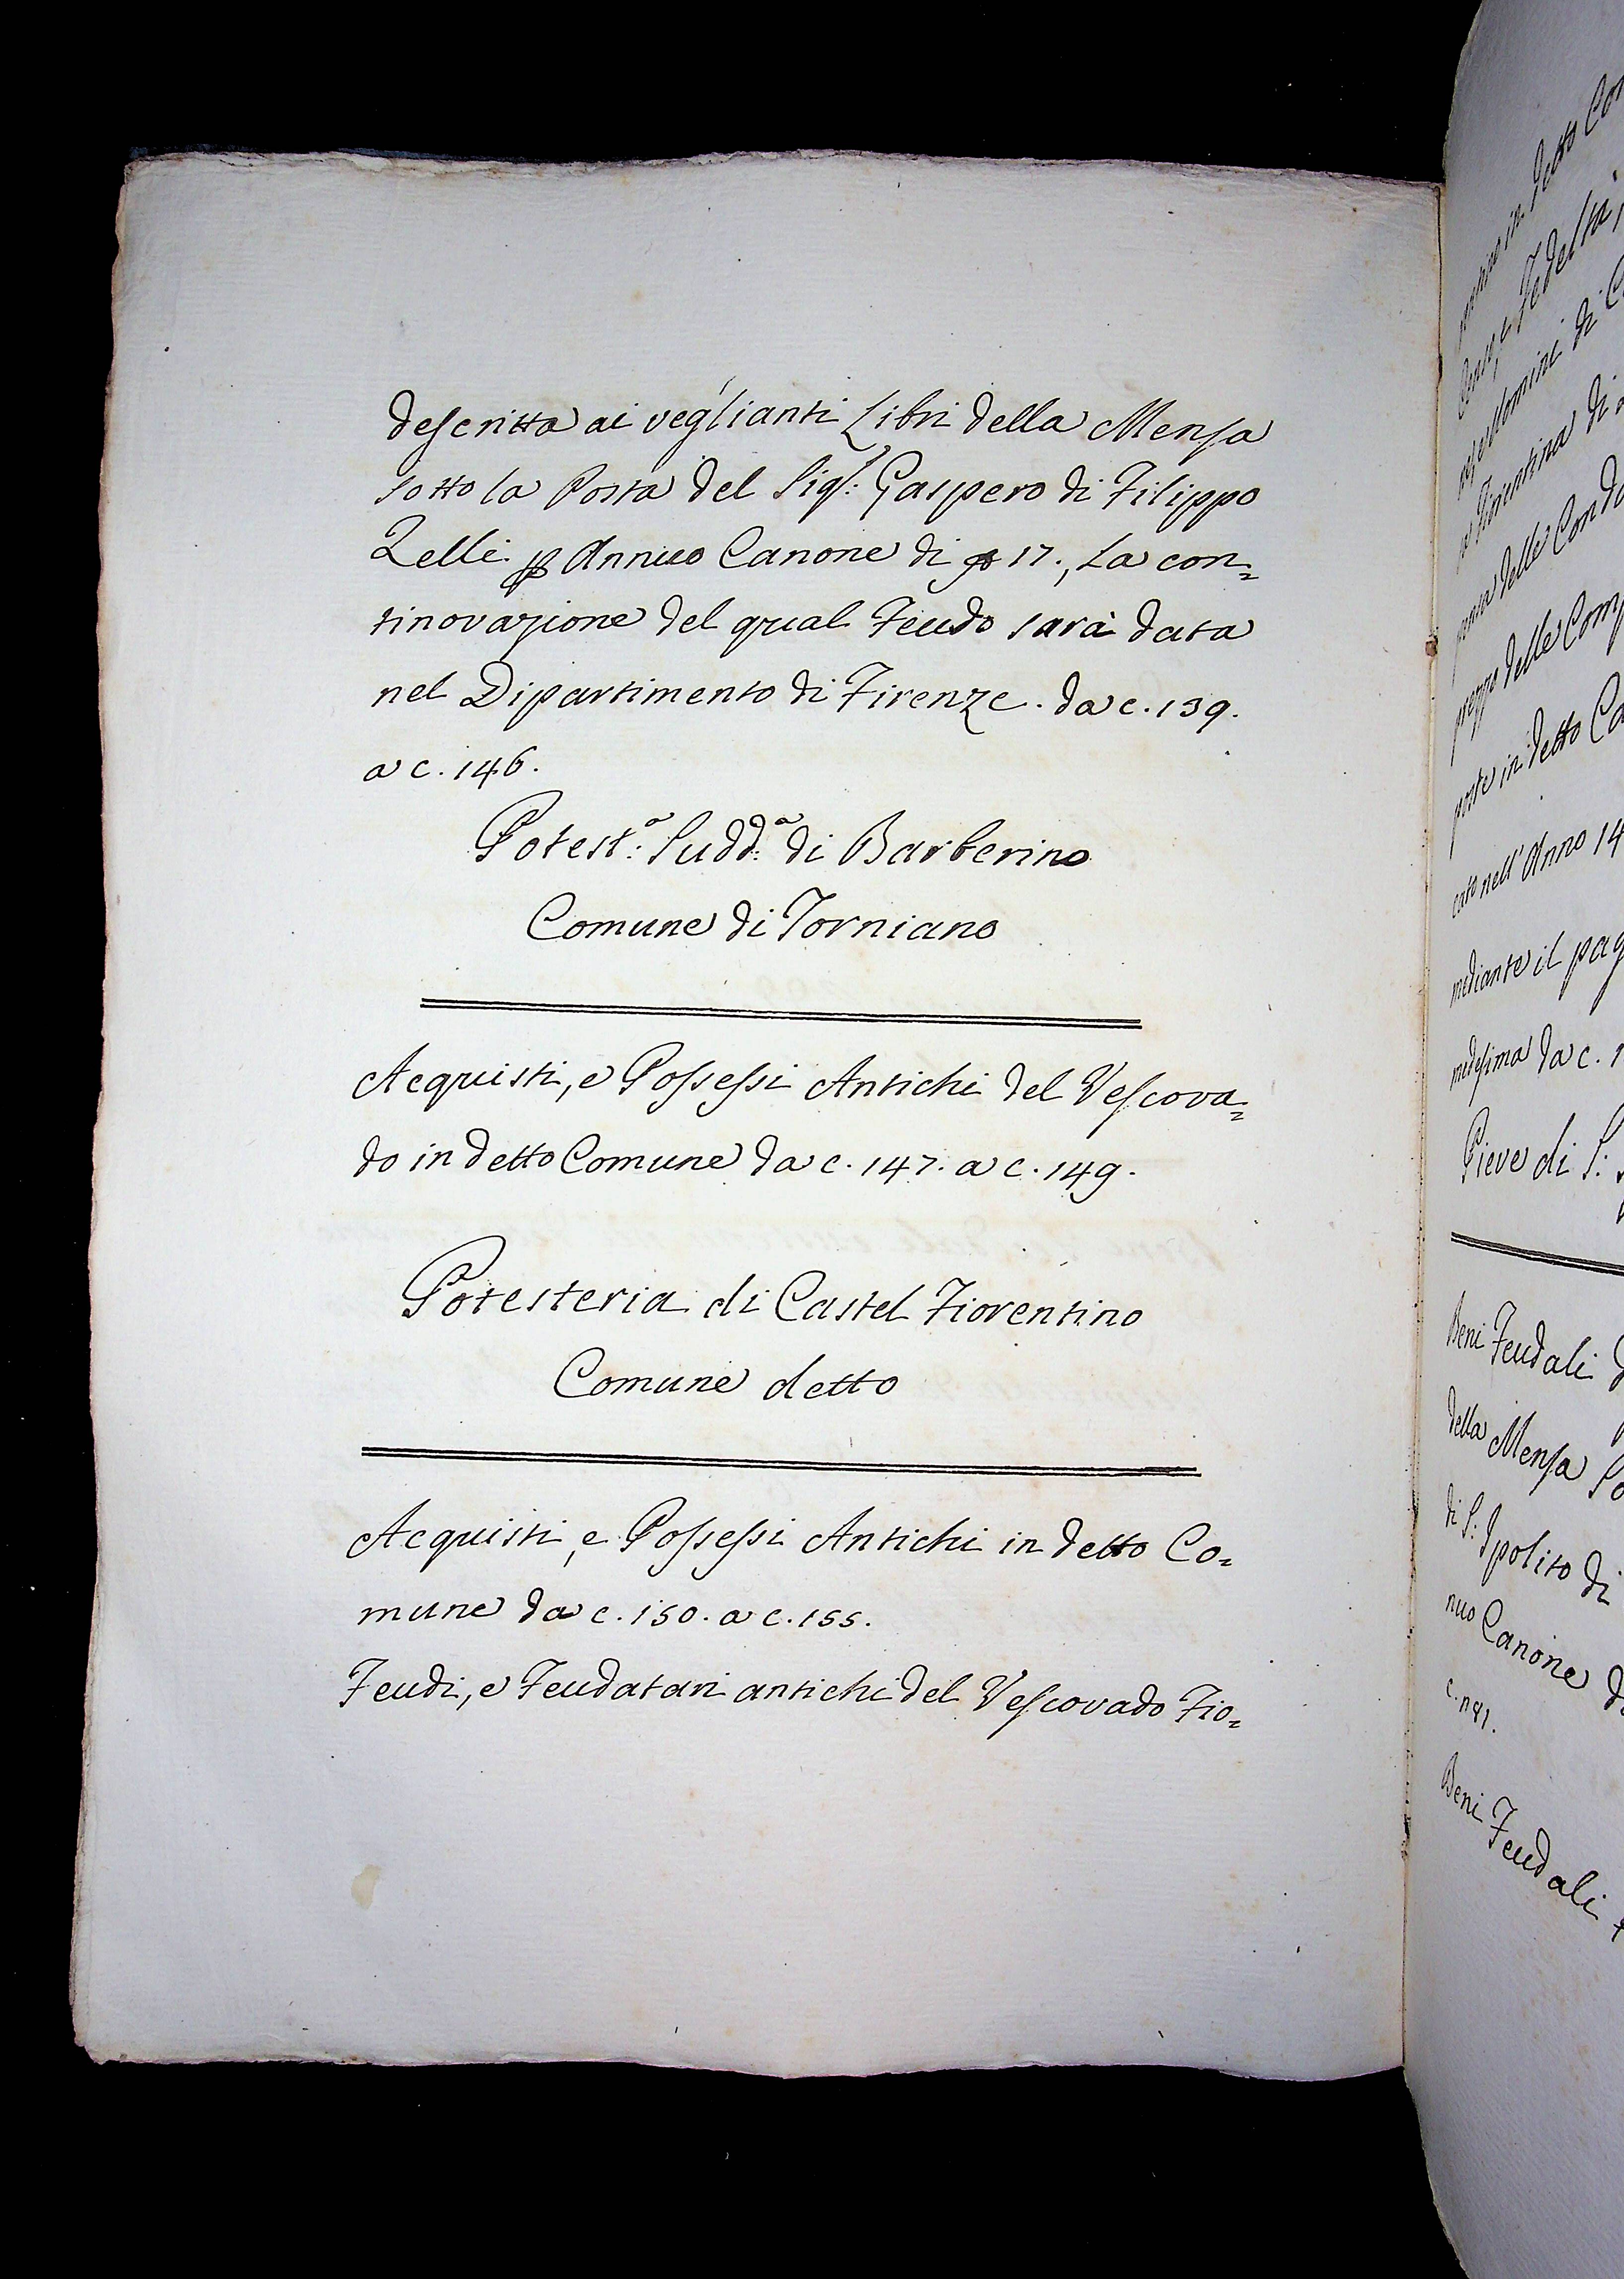 descritta ai veglianti Libri della Mensa
sotto la Posta del Sig.r: Gaspero di Filippo
Lelli p Annuo Canone di 17., La con=
tinovazione del qual Feudo sarà data
nel Dipartimento di Firenze. da c. 139.
a c. 146.
Potest:a Sudd:a di Barberino
Comune di Torniano
Acquisti, e Possessi Antichi del Vescova=
do in detto Comune da c. 147. a c. 149.
Potesteria di Castel Fiorentino
Comune detto
Acquisti, e Possessi Antichi in detto Co=
mune da c. 150. a c. 155.
Feudi, e Feudatari antichi del Vescovado Fio=
in detto
Fedeltà
di
Fiorentina di
delle
prezzo delle
poste in detto
cato nell' Anno 14
mediante il pag
medesima da c. 1
Pieve di S:
Beni Feudali
della Mensa
di S: Ipolito di
nuo Canone
Beni Feudali